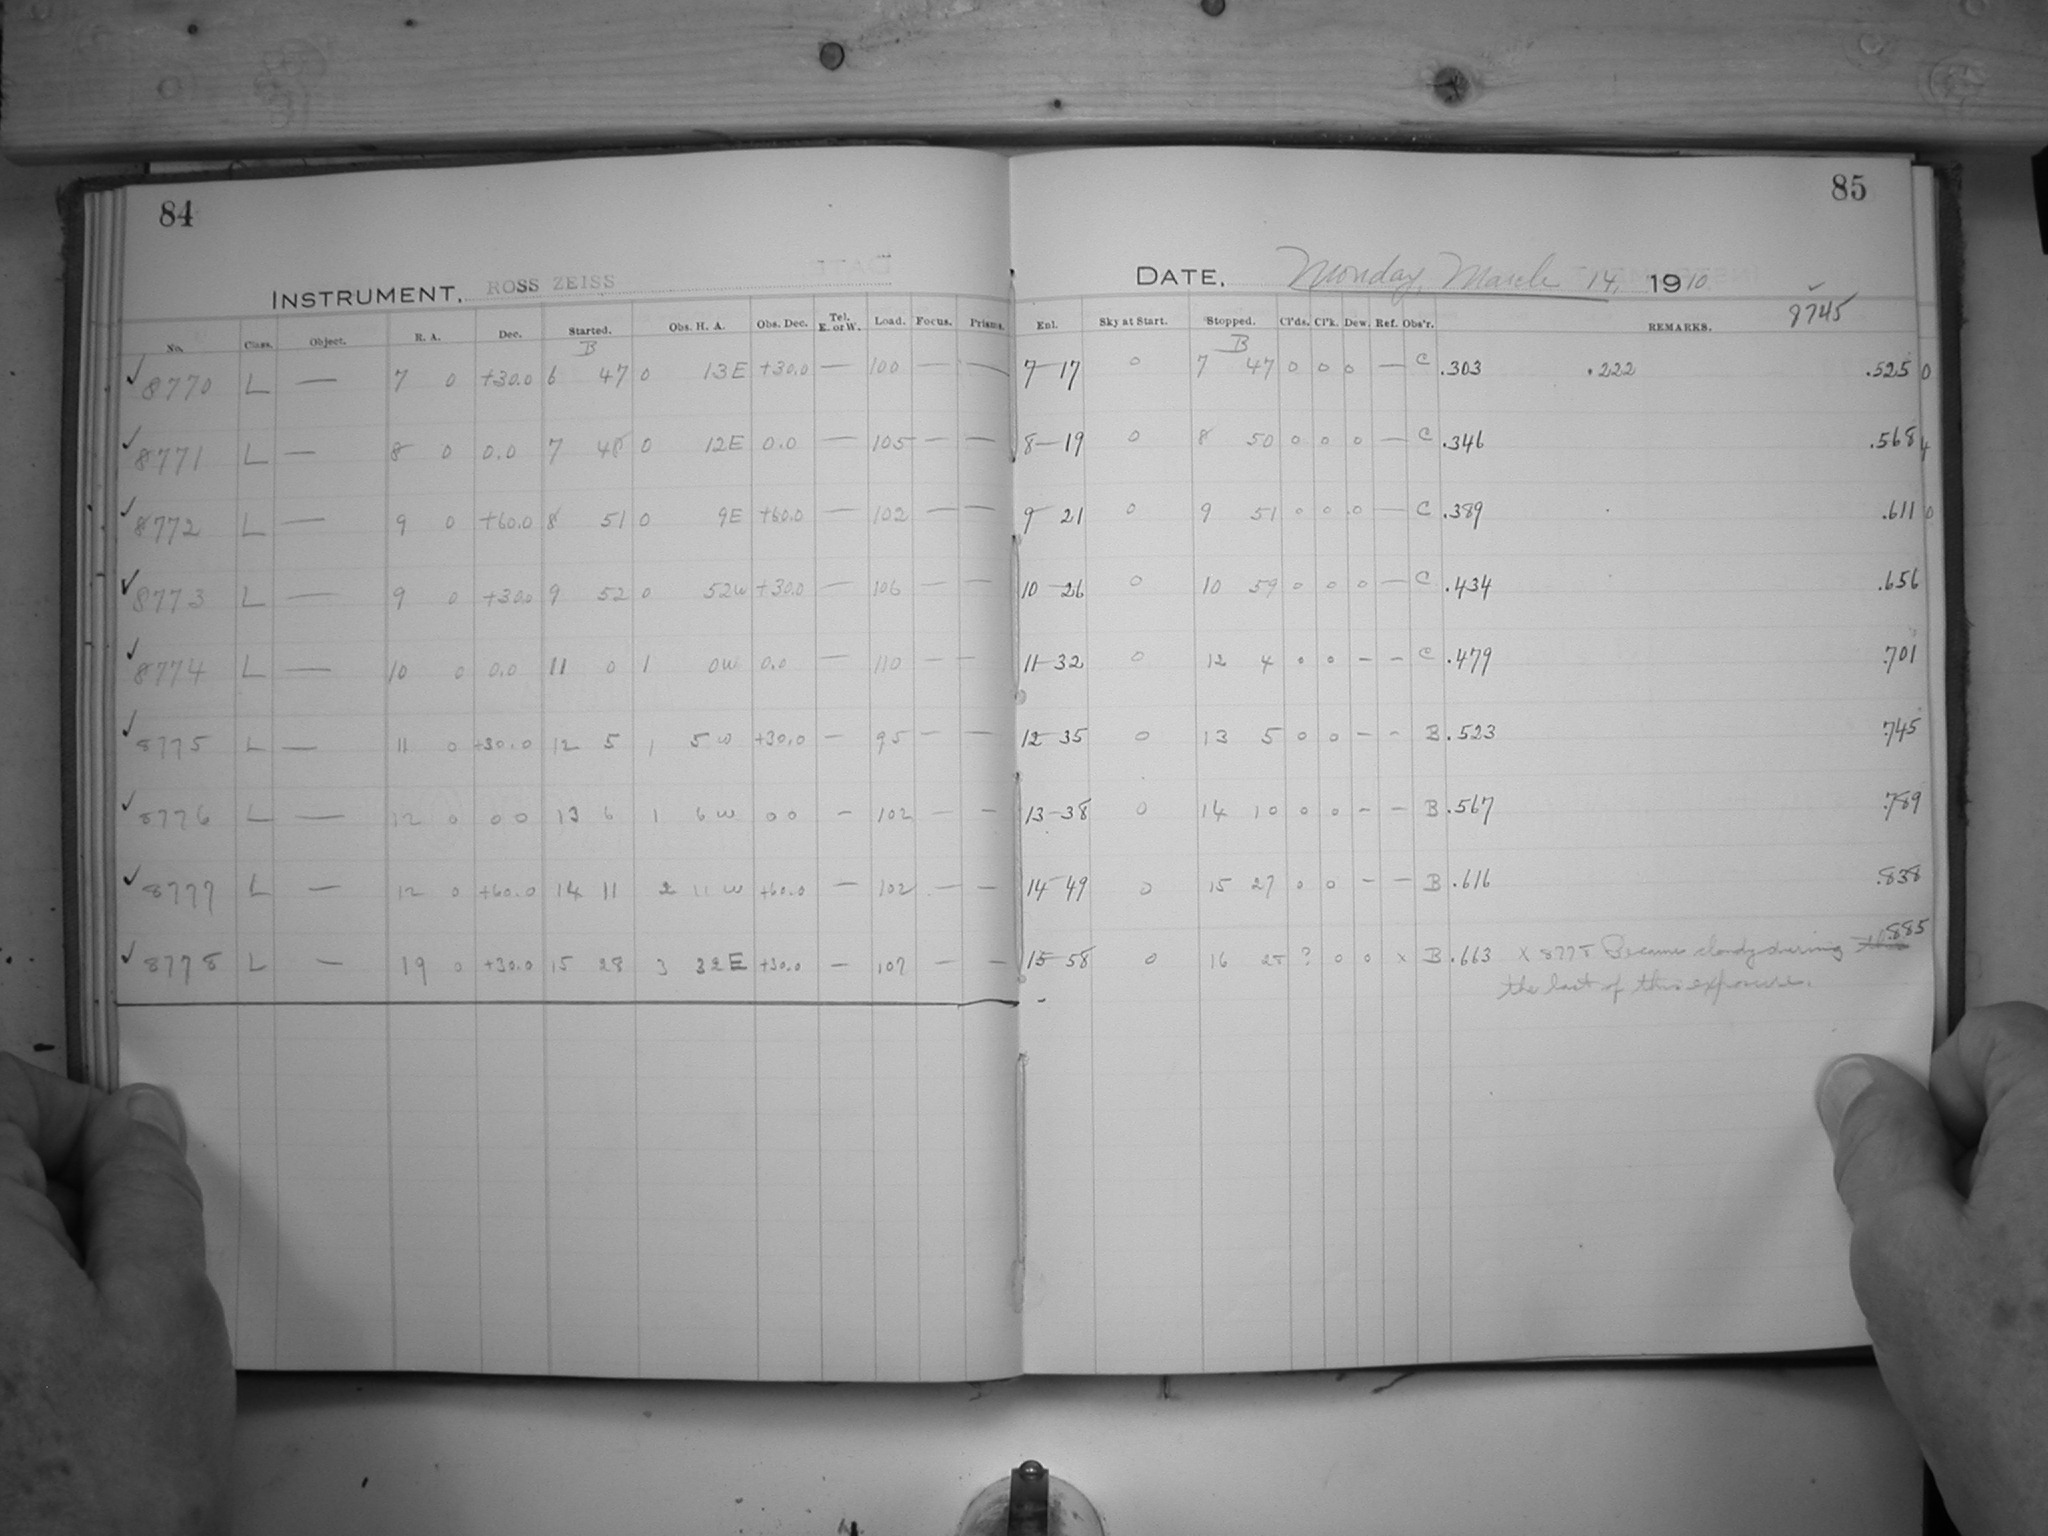 84
85
INSTRUMENT, ROSS ZEISS
DATE, Monday, March 14, 1910
8745
No. Class. Object. R. A. Dec. Started. Obs. H. A. Obs. Dec. Tel. E. or W. Load. Focus. Prisms. Enl. Sky at Start. Stopped. Cl'ds. Cl'k. Dew. Ref. Obs'r. REMARKS.
B B
✓ 8770 L — 7 0 +30.0 6 47 0 13E +30.0 — 100 — — 7—17 0 7 47 0 0 0 — C .303 .222 .525 0
✓ 8771 L — 8 0 0.0 7 48 0 12E 0.0 — 105 — — 8—19 0 8 50 0 0 0 — C .346 .568 4
✓ 8772 L — 9 0 +60.0 8 51 0 9E +60.0 — 102 — — 9 21 0 9 51 0 0 0 — C .389 .611 0
✓ 8773 L — 9 0 +30.0 9 52 0 52W +30.0 — 106 — — 10—26 0 10 59 0 0 0 — C .434 .656
✓ 8774 L — 10 0 0.0 11 0 1 0W 0.0 — 110 — — 11—32 0 12 4 0 0 — — C .479 .701
✓ 8775 L — 11 0 +30.0 12 5 1 5W +30.0 — 95 — — 12—35 0 13 5 0 0 — — B .523 .745
✓ 8776 L — 12 0 0 0 13 6 1 6W 0 0 — 102 — — 13—38 0 14 10 0 0 — — B .567 .789
✓ 8777 L — 12 0 +60.0 14 11 2 11W +60.0 — 102 — — 14—49 0 15 27 0 0 — — B .616 .838
✓ 8778 L — 19 0 +30.0 15 28 3 32E +30.0 — 107 — — 15—58 0 16 28 ? 0 0 x B .663 x 8778 Became cloudy during .885
the last of this exposure.